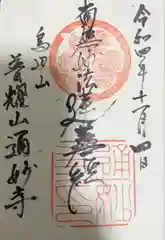 令和四年十一月四日
南無妙法蓮華経
鳥羽山
普耀山通妙寺